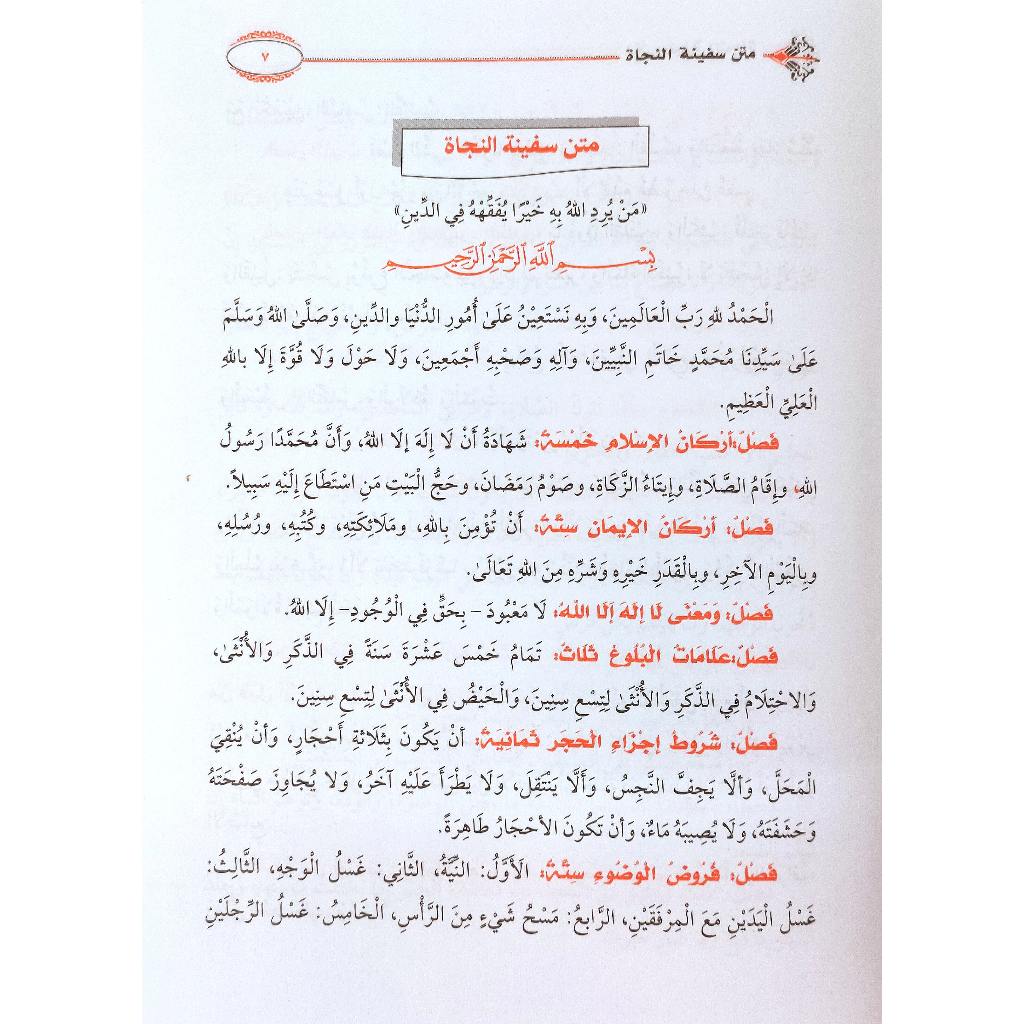 متن سفينة النجاة
٧
متن سفينة النجاة
«مَنْ يُرِدِ اللهُ بِهِ خَيْرًا يُفَقِّهْهُ فِي الدِّينِ»
بِسْمِ ٱللَّهِ ٱلرَّحْمَٰنِ ٱلرَّحِيمِ
الْحَمْدُ للهِ رَبِّ الْعَالَمِينَ، وَبِهِ نَسْتَعِيْنُ عَلَىٰ أُمُورِ الدُّنْيَا والدِّينِ، وَصَلَّى اللهُ وَسَلَّمَ
عَلَىٰ سَيِّدِنَا مُحَمَّدٍ خَاتَمِ النَّبِيِّينَ، وَآلِهِ وَصَحْبِهِ أَجْمَعِينَ، وَلَا حَوْلَ وَلَا قُوَّةَ إِلَا بالله
الْعَلِيِّ الْعَظِيمِ.
فَصْلٌ:أَرْكَانُ الإِسْلَامِ خَمْسَةٌ: شَهَادَةُ أَنْ لَا إِلَهَ إِلَا اللهُ، وَأَنَّ مُحَمَّدًا رَسُولُ
اللهِ، وإِقَامُ الصَّلَاةِ، وإِيتَاءُ الزَّكَاةِ، وصَوْمُ رَمَضَانَ، وحَجُّ الْبَيْتِ مَنِ اسْتَطَاعَ إِلَيْهِ سَبِيلاً.
فَصْلٌ: أَرْكَانُ الإِيمَانِ سِتَّةٌ: أَنْ تُؤْمِنَ بِاللهِ، ومَلَائِكَتِهِ، وكُتُبِهِ، ورُسُلِهِ،
وبِالْيَوْمِ الآخِرِ، وبِالْقَدَرِ خَيْرِهِ وَشَرِّهِ مِنَ اللهِ تَعَالَىٰ.
فَصْلٌ: وَمَعْنَى لَا إِلهَ إلَا اللهُ: لَا مَعْبُودَ - بِحَقٍّ فِي الْوُجُودِ- إِلَا اللهُ.
فَصْلٌ:عَلَامَاتُ الْبُلُوغِ ثَلَاثٌ: تَمَامُ خَمْسَ عَشْرَةَ سَنَةً فِي الذَّكَرِ وَالأُنْثَىٰ،
وَالاحْتِلَامُ فِي الذَّكَرِ وَالأُنْثَىٰ لِتِسْعِ سِنِينَ، وَالْحَيْضُ فِي الأُنْثَىٰ لِتِسْعِ سِنِينَ.
فَصْلٌ: شُرُوطُ إجْزَاءِ الْحَجَرِ ثَمَانِيَةٌ: أنْ يَكُونَ بِثَلَاثةِ أَحْجَارٍ، وَأنْ يُنْقِيَ
الْمَحَلَّ، وَأَلَّا يَجِفَّ النَّجِسُ، وَأَلَّا يَنْتَقِلَ، وَلَا يَطْرَأَ عَلَيْهِ آخَرُ، وَلا يُجَاوِزَ صَفْحَتَهُ
وَحَشَفَتَهُ، وَلَا يُصِيبَهُ مَاءٌ، وَأنْ تَكُونَ الأحْجَارُ طَاهِرَةً.
فَصْلٌ: فُرُوضُ الْوُضُوءِ سِتَّةٌ: الأَوَّلُ: النِّيَّةُ، الثَّانِي: غَسْلُ الْوَجْهِ، الثَّالِثُ:
غَسْلُ الْيَدَيْنِ مَعَ الْمِرْفَقَيْنِ، الرَّابِعُ: مَسْحُ شَيْءٍ مِنَ الرَّأْسِ، الْخَامِسُ: غَسْلُ الرِّجْلَيْنِ